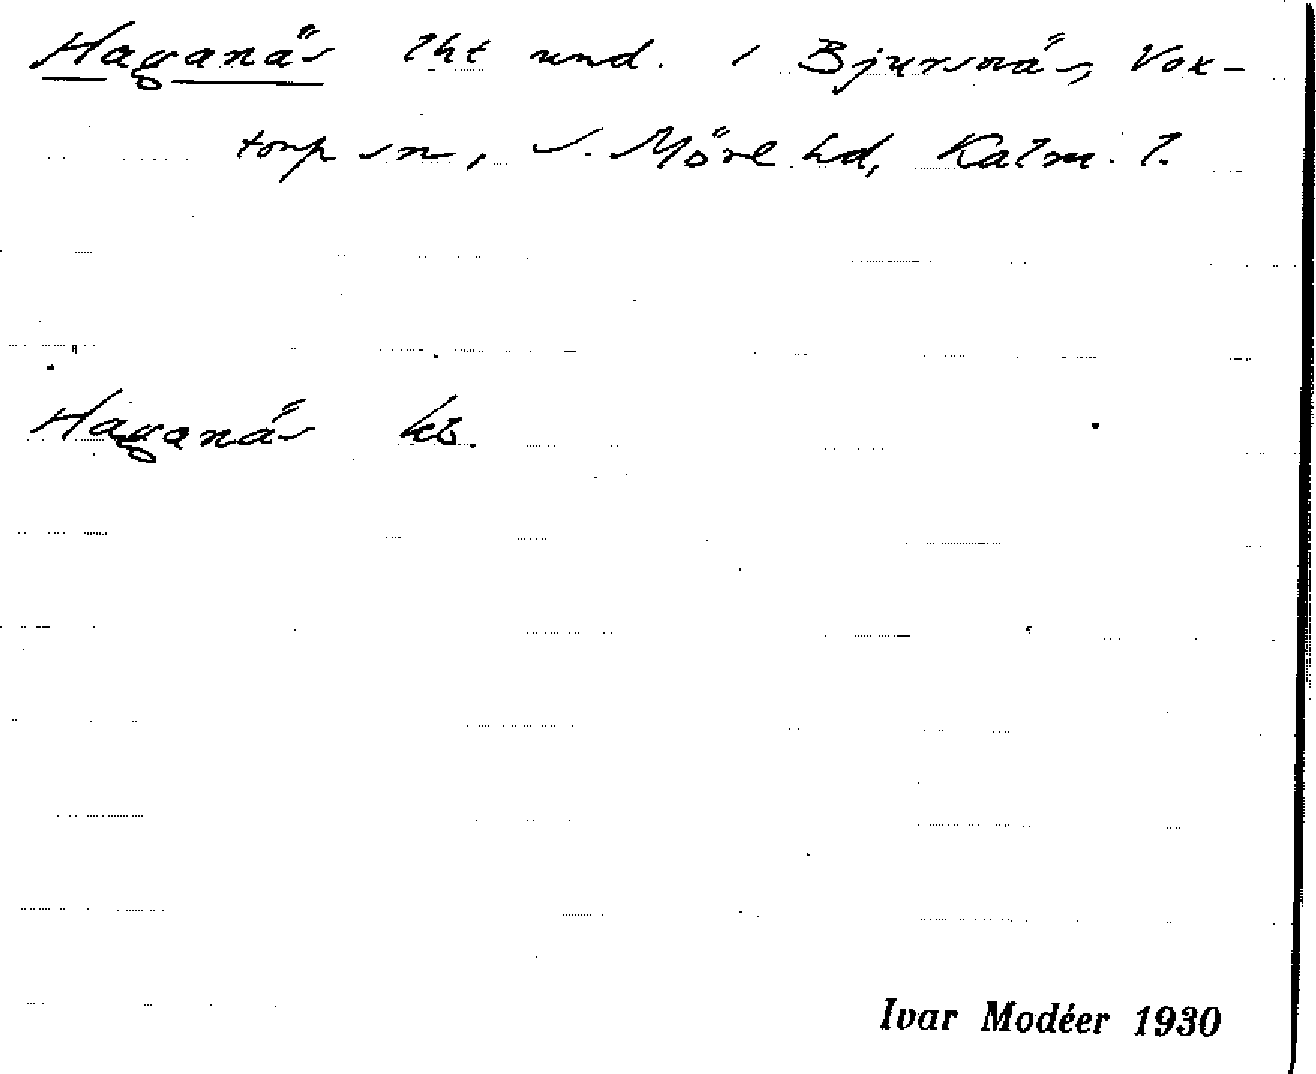 Haganäs lht und. i Bjursnäs, Vox-
torp sn, S. Möre hd, Kalm. l.
Haganäs kb.
Ivar Modéer 1930